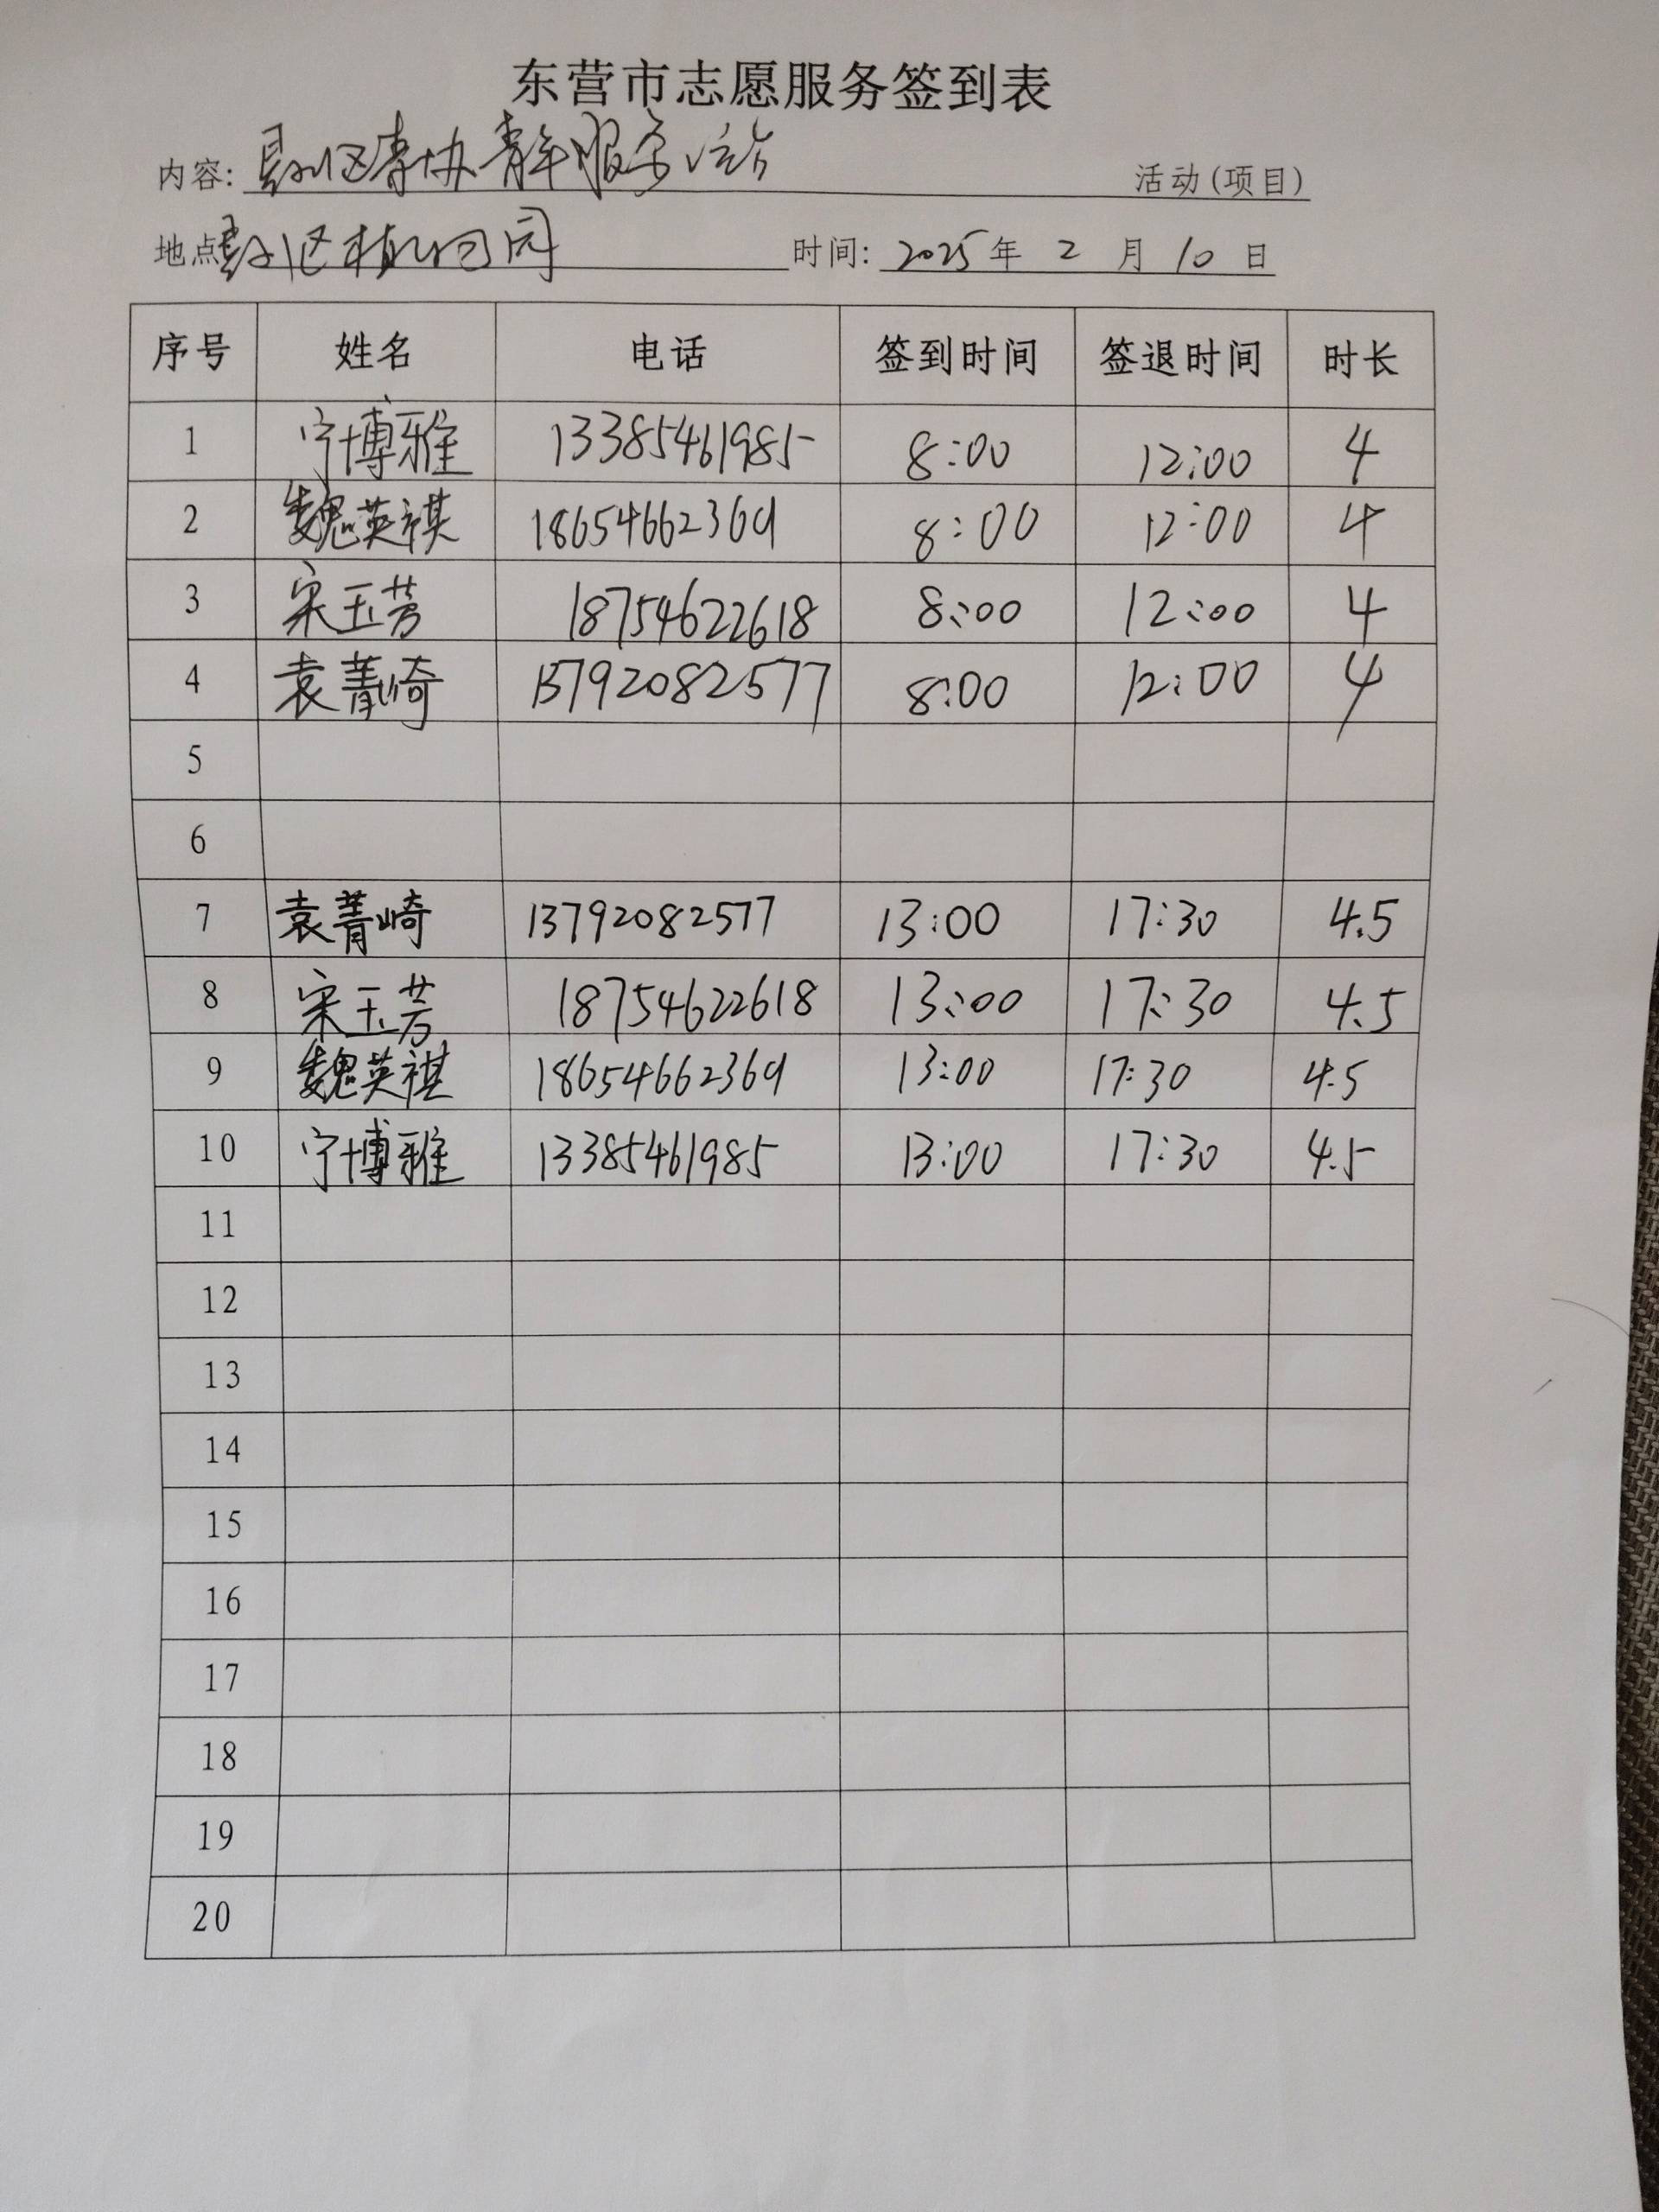 东营市志愿服务签到表
内容: 垦利区青协青年服务站 活动(项目)
地点 垦利区植物园 时间: 2025年 2 月 10 日
序号 姓名 电话 签到时间 签退时间 时长
1 宁博雅 13385461985 8:00 12:00 4
2 魏英祺 18654662369 8:00 12:00 4
3 宋玉芳 18754622618 8:00 12:00 4
4 袁菁崎 13792082577 8:00 12:00 4
5
6
7 袁菁崎 13792082577 13:00 17:30 4.5
8 宋玉芳 18754622618 13:00 17:30 4.5
9 魏英祺 18654662369 13:00 17:30 4.5
10 宁博雅 13385461985 13:00 17:30 4.5
11
12
13
14
15
16
17
18
19
20